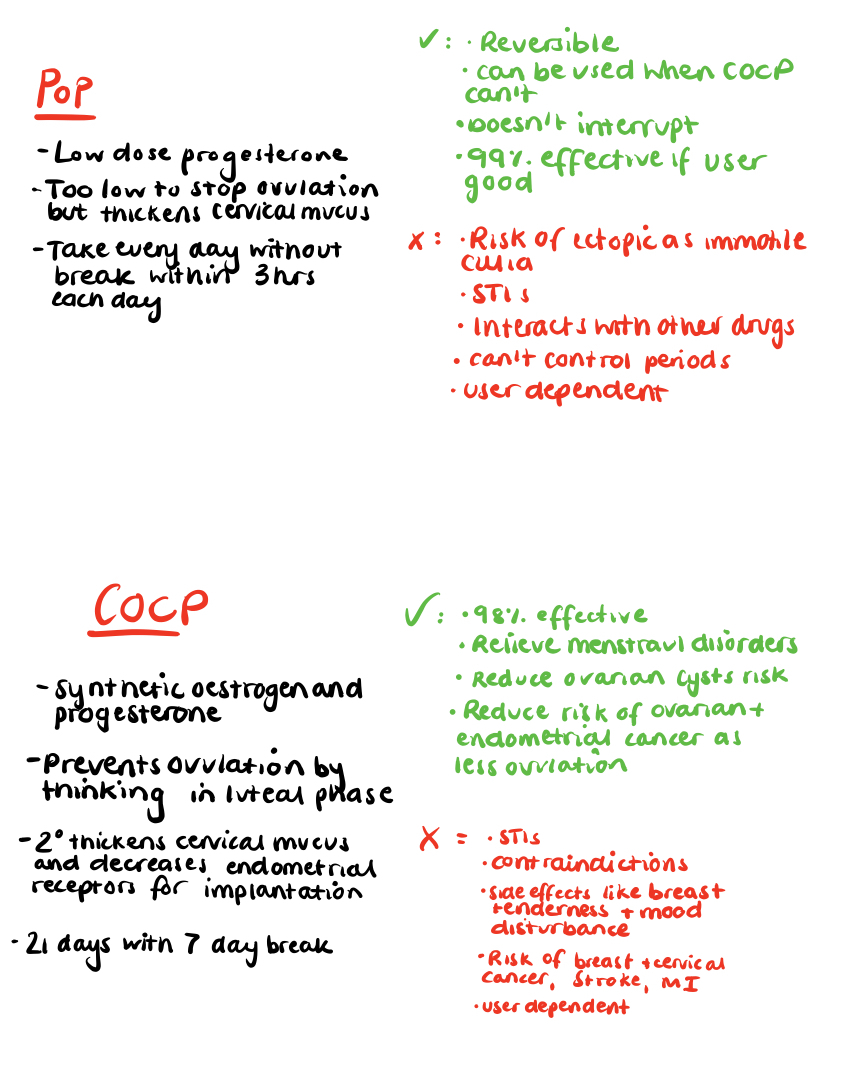 POP
- Low dose progesterone
- Too low to stop ovulation
but thickens cervical mucus
- Take every day without
break within 3hrs
each day
✓: · Reversible
· can be used when COCP
can't
· Doesn't interrupt
· 99% effective if user
good
x: · Risk of ectopic as immotile
cillia
· STIs
· Interacts with other drugs
· can't control periods
· user dependent
COCP
- synthetic oestrogen and
progesterone
- Prevents ovulation by
thinking in luteal phase
- 2° thickens cervical mucus
and decreases endometrial
receptors for implantation
- 21 days with 7 day break
✓: · 98% effective
· Relieve menstraul disorders
· Reduce ovarian cysts risk
· Reduce risk of ovarian +
endometrial cancer as
less ovulation
X = · STIs
· contraindictions
· side effects like breast
tenderness + mood
disturbance
· Risk of breast + cervical
cancer, stroke, MI
· user dependent